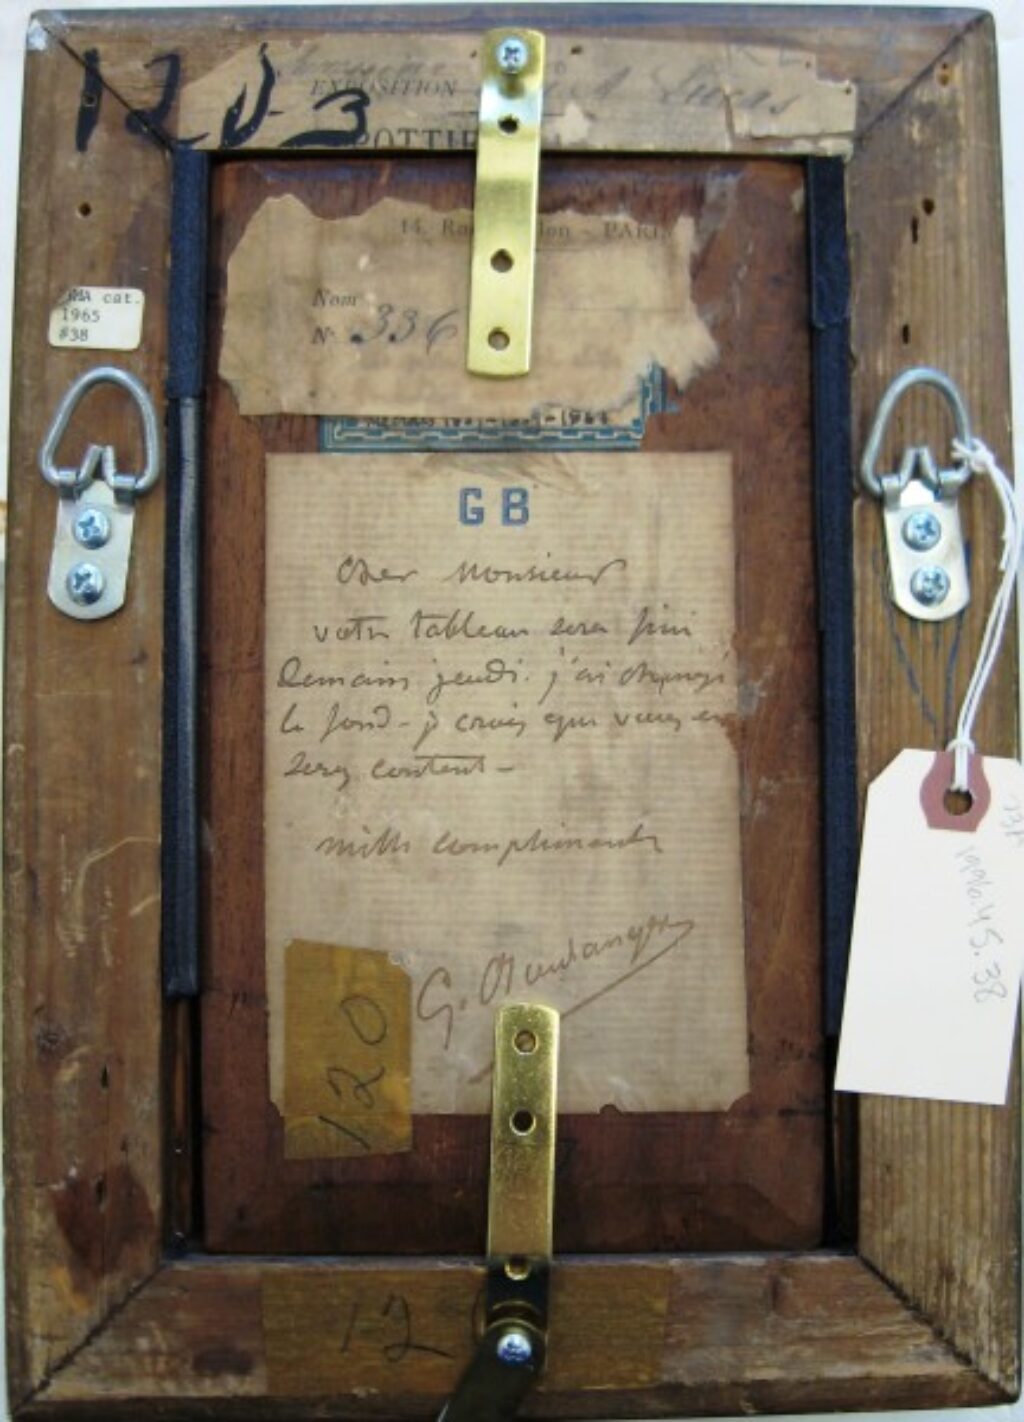 1203
EXPOSITION
Lucas
POTTIE
14, Ru lon - PARIS
Nom
N° 336
BMA cat.
1965
#38
G B
Cher Monsieur
votre tableau sera fini
Demain jeudi. j'ai changé
le fond - je crois que vous en
serez content -
mille compliments
G. Boulanger
120
12
1996.45.38